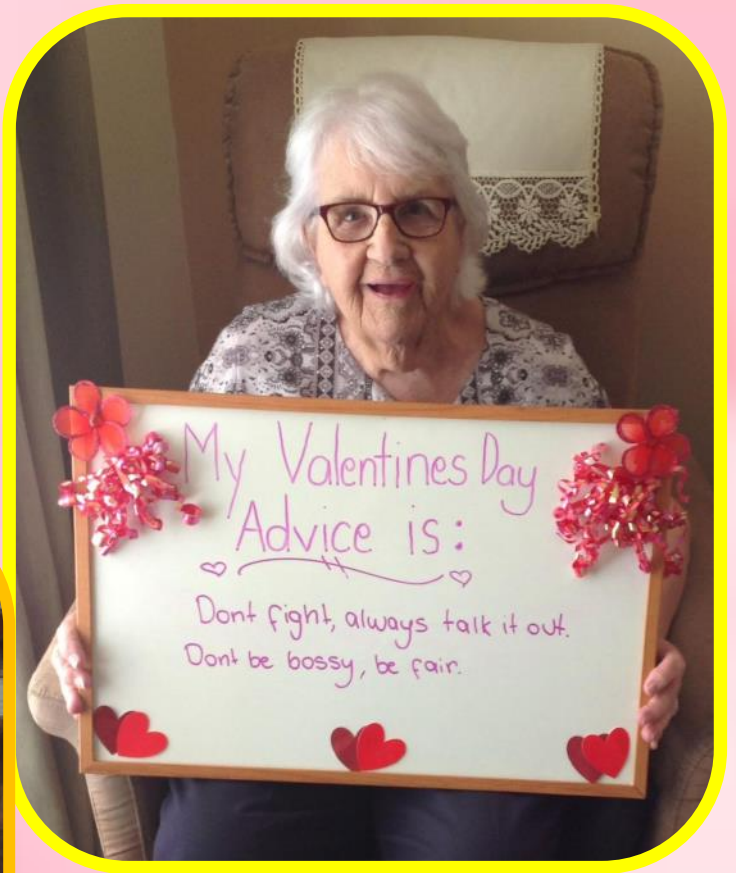 My Valentines Day
Advice is:
Dont fight, always talk it out.
Dont be bossy, be fair.